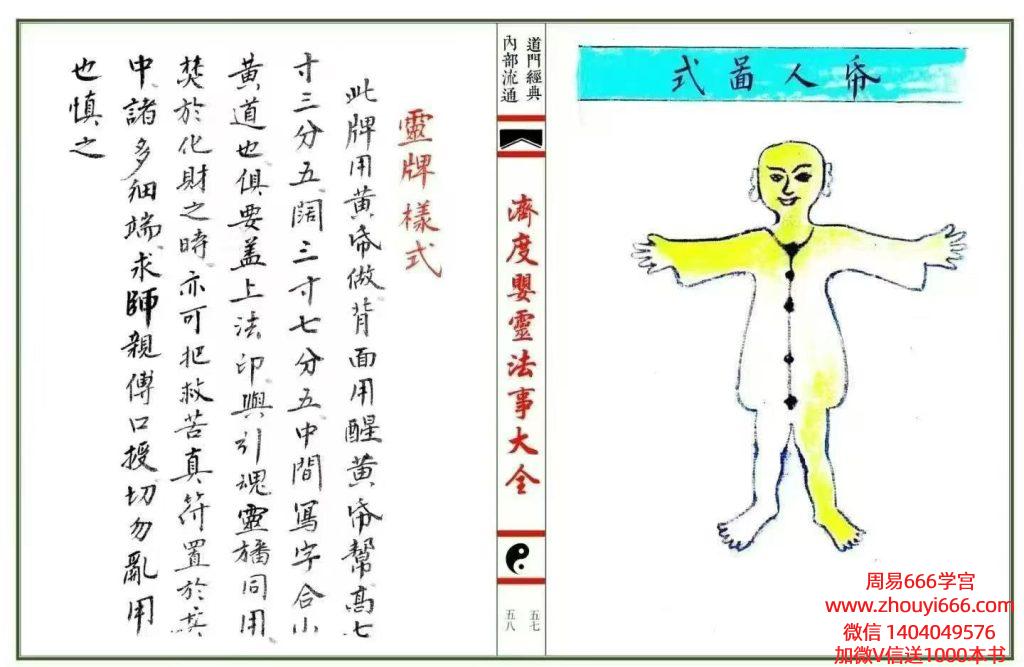 紙人圖式
道門經典
內部流通
濟度嬰靈法事大全
五七
五八
靈牌樣式
此牌用黄帋做背面用醒黄帋幫高七
寸三分五阔三寸七分五中間寫字合小
黄道也俱要盖上法印與引魂靈旛同用
焚於化財之時亦可把救苦真符置於其
中諸多细端求師親傳口授切勿亂用
也慎之
周易666学宫
www.zhouyi666.com
微信 1404049576
加微V信送1000本书